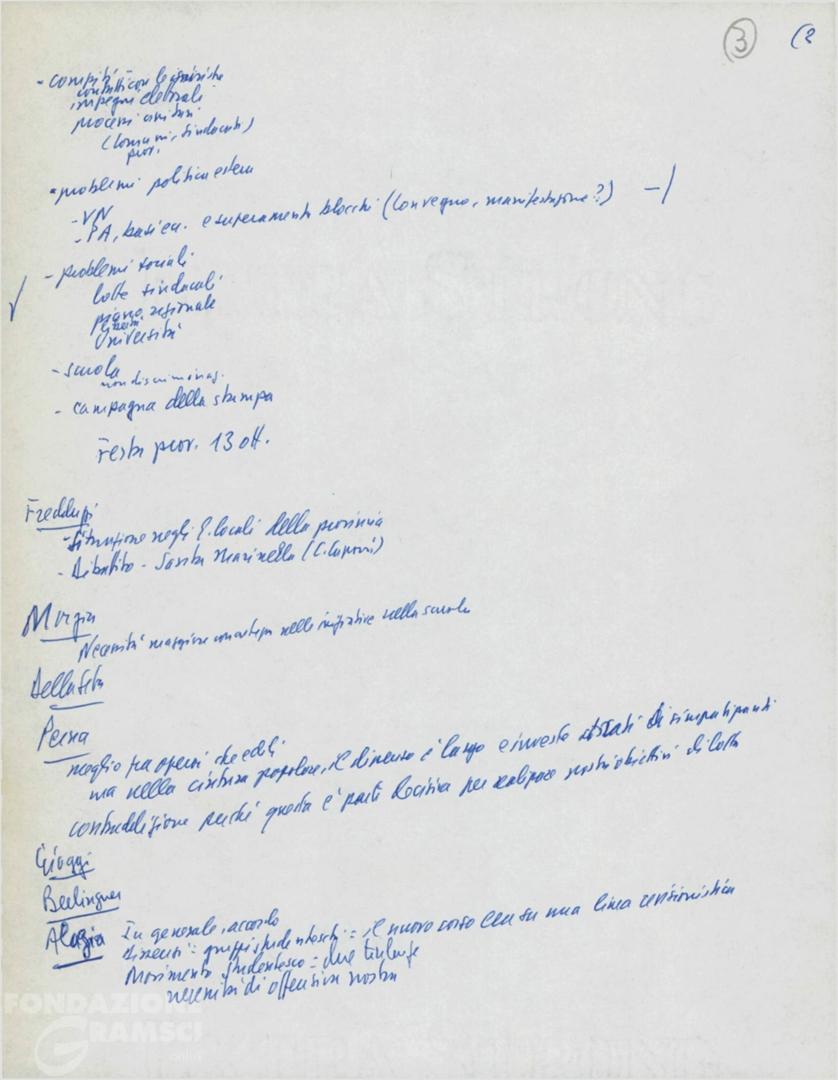 3 (2
- compiti
contatti con le
impegni elettorali
processi unitari
(Comuni, sindacati)
prov.
- problemi politica estera
- VN
- PA, basi e superamento blocchi (Convegno, manifestazione?) -/
- problemi sociali
lotte sindacali
piano regionale
Università
- scuola
non discriminaz.
- campagna della stampa
Festa prov. 13 ott.
Freddu
- Situazione negli E. locali della provincia
- Dibattito - Santa Marinella (C. Caponi)
Morgia
Necessità maggiore nelle iniziative nella scuola
Della Seta
Perna
meglio tra operai che edili
ma nella cintura popolare, il dissenso è largo e investe strati di simpatizzanti
contraddizione perché questa è parte decisiva per realizzare nostri obiettivi di lotta
Gioggi
Berlinguer
Alagia In generale, accordo
Dissensi: gruppi studenteschi = il nuovo corso era su una linea revisionistica
Movimento studentesco = due tendenze
necessità di offensiva nostra
FONDAZIONE
GRAMSCI
online